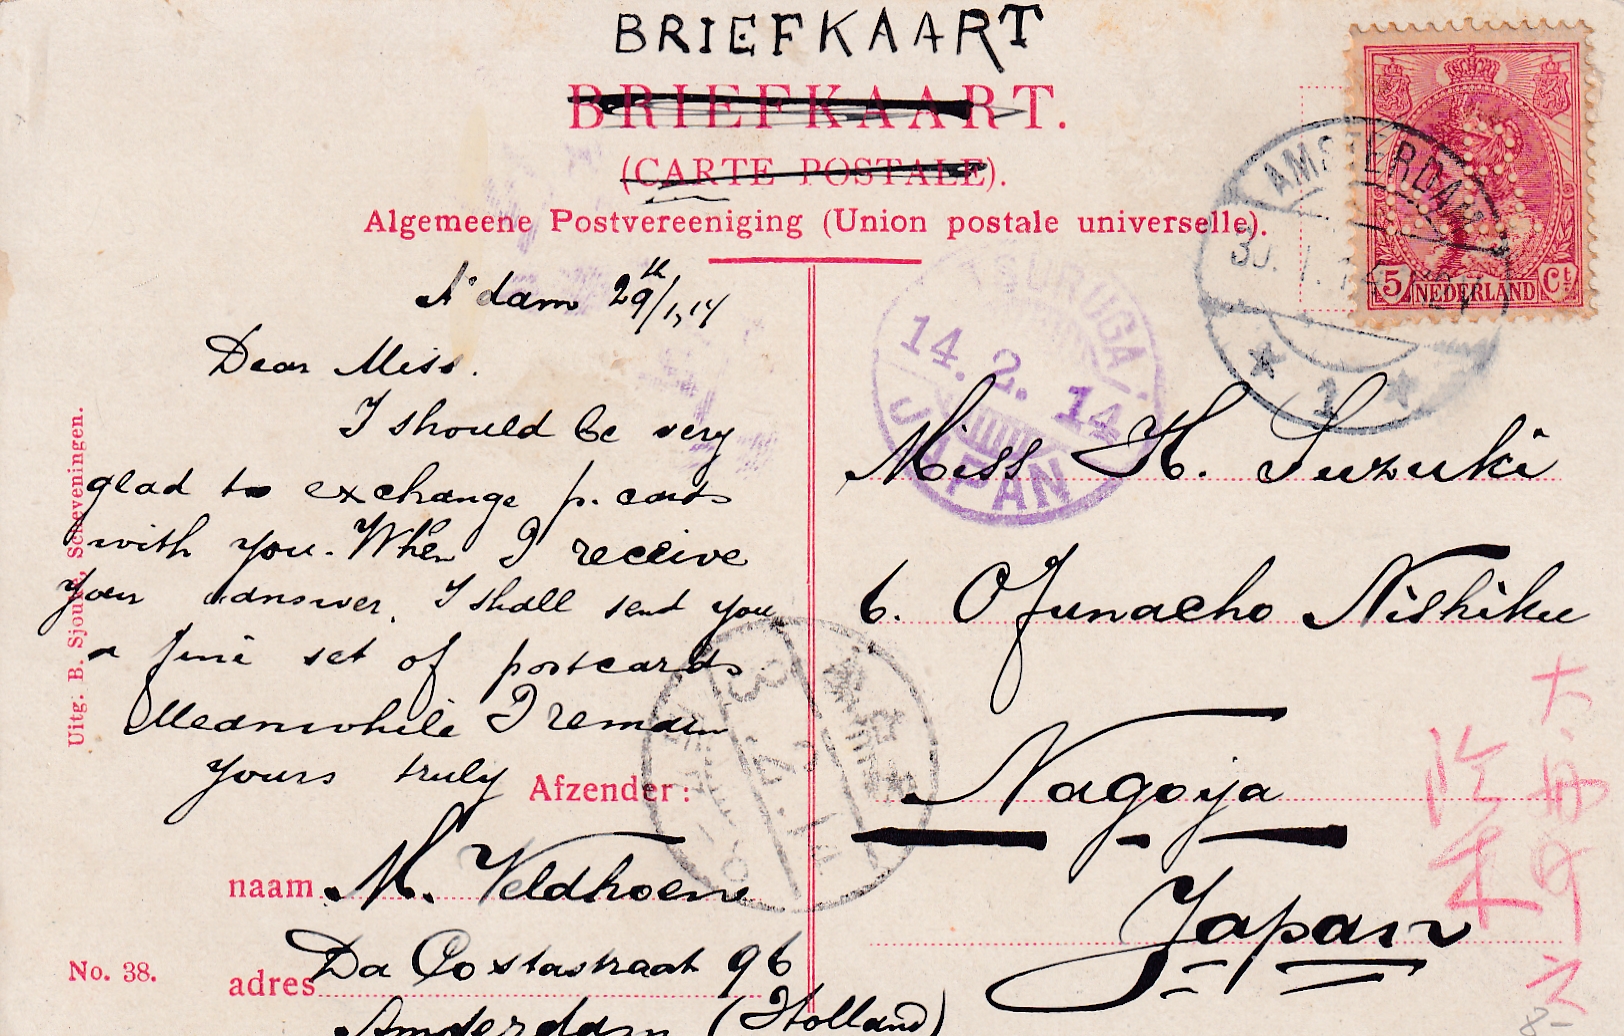 BRIEFKAART
BRIEFKAART.
(CARTE POSTALE).
Algemeene Postvereeniging (Union postale universelle).
AMSTERDAM
1
5 NEDERLAND Ct
TSURUGA
14.2.14
JAPAN
A'dam 29th/1,14
Dear Miss.
I should be very
glad to exchange p. cards
with you. When I receive
your answer, I shall send you
a fine set of postcards
Meanwhile I remain
yours truly
Afzender:
naam M. Veldhoen
adres Da Costastraat 96
Amsterdam (Holland)
No. 38.
Uitg. B. Sjouke, Scheveningen.
Miss H. Suzuki
6. Ofunacho Nishiku
Nagoya
Japan
8-